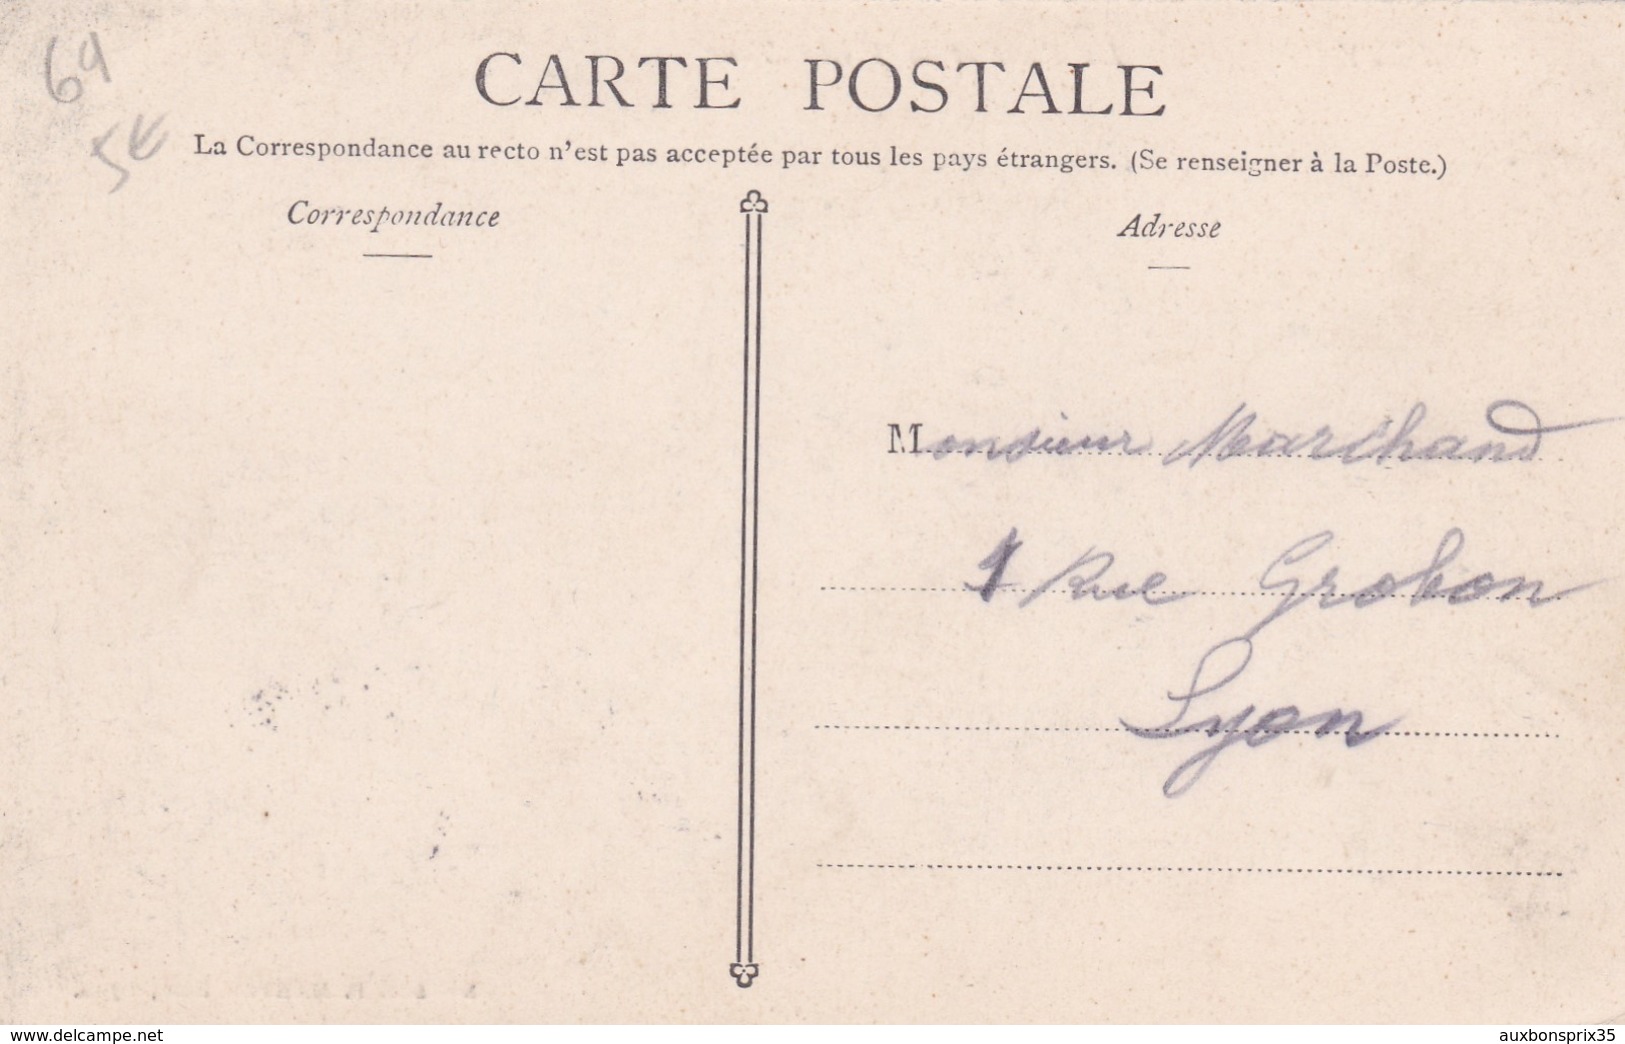 69
5€
CARTE POSTALE
La Correspondance au recto n'est pas acceptée par tous les pays étrangers. (Se renseigner à la Poste.)
Correspondance
Adresse
Monsieur Marchand
1 Rue Grobon
Lyon
www.delcampe.net
auxbonsprix35